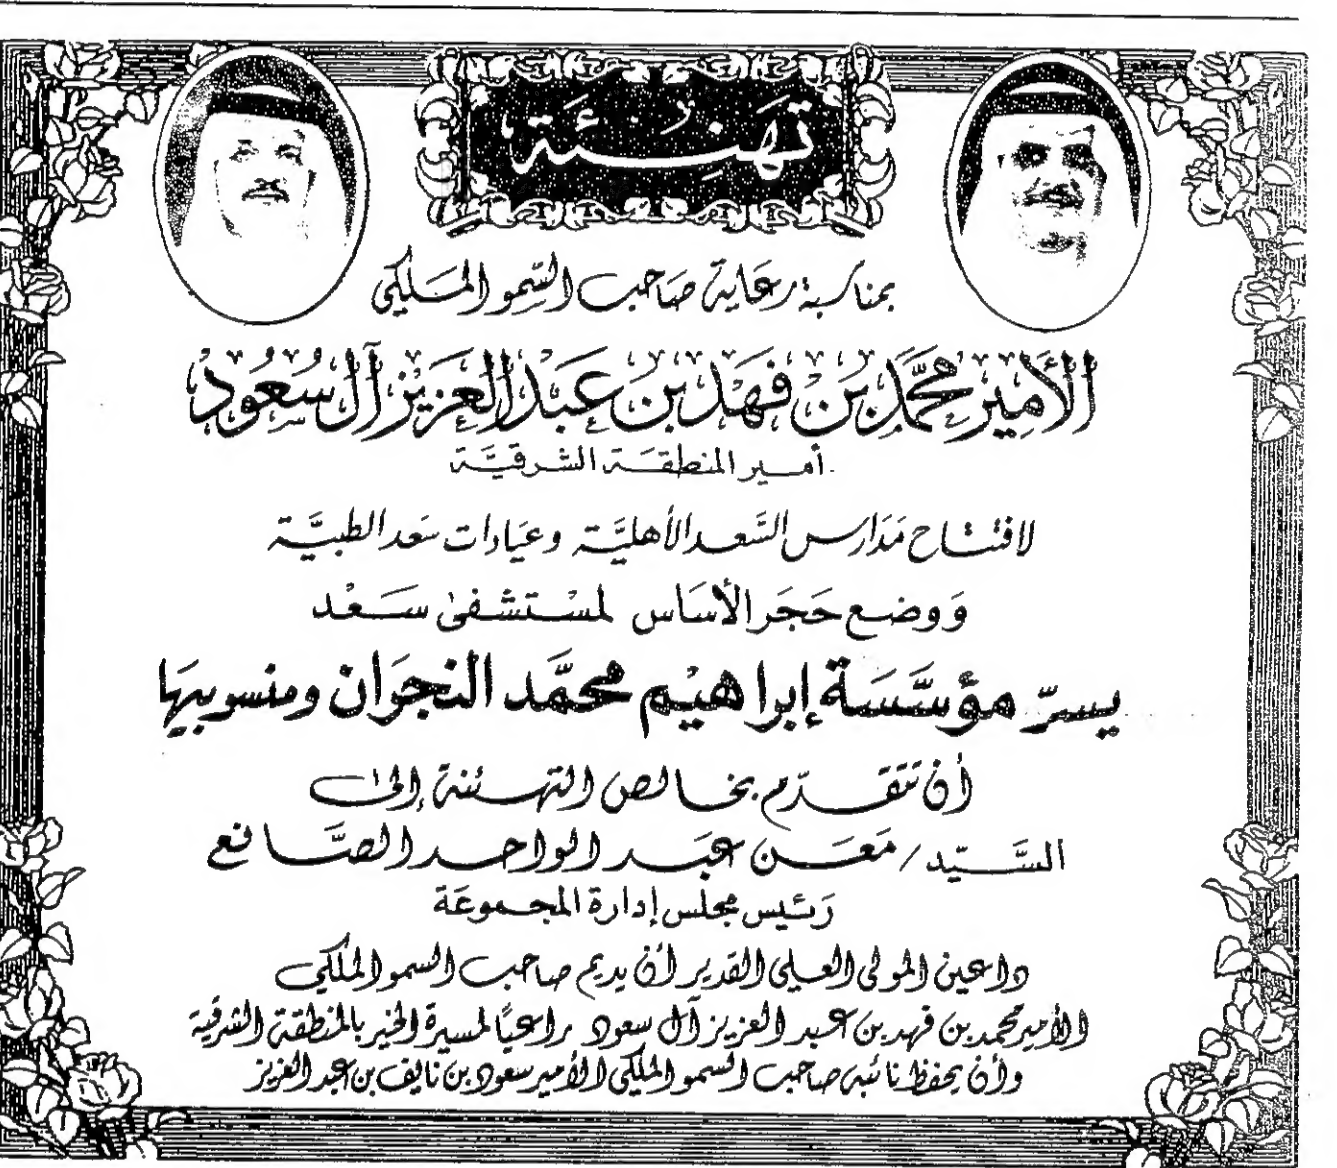 تَهَنِئَة
بمناسبة رعاية صاحب السّمو المَلكي
الأمير محمَّد بن فهد بن عَبد العَزيز آل سعُود
أمير المنطقة الشرقيَّة
لافتتاح مَدارس السَّعد الأهليَّة وعيَادات سَعد الطبيَّة
وَوضع حَجَر الأسَاس لمسْتشفىٰ سَعْد
يسرّ مؤسَّسَة إبراهيْم محمَّد النجوَان ومنسوبيهَا
أن تتقدّم بخالص التهنئة إلى
السَّيّد / مَعَن عبَد الواحد الصَّانع
رَئيس مجلس إدارة المجموعَة
داعين المولى العلي القدير أن يديم صاحب السمو الملكي
الأمير محمد بن فهد بن عبد العزيز آل سعود راعيًا لمسيرة الخير بالمنطقة الشرقية
وأن يحفظ نائبه صاحب السمو الملكي الأمير سعود بن نايف بن عبد العزيز